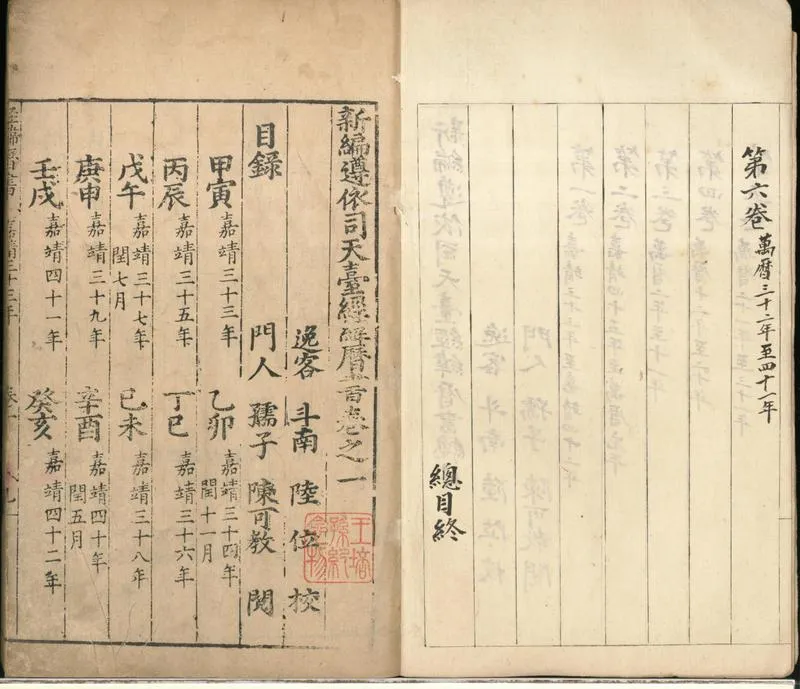 第六卷 萬曆三十二年至四十一年
總目終
新編遵依司天臺經緯曆書卷之一
逸客斗南陸位校
目録 門人孺子陳可教閱
甲寅 嘉靖三十三年 乙卯 嘉靖三十四年 閏十一月
丙辰 嘉靖三十五年 丁巳 嘉靖三十六年
戊午 嘉靖三十七年 閏七月 己未 嘉靖三十八年
庚申 嘉靖三十九年 辛酉 嘉靖四十年 閏五月
壬戌 嘉靖四十一年 癸亥 嘉靖四十二年